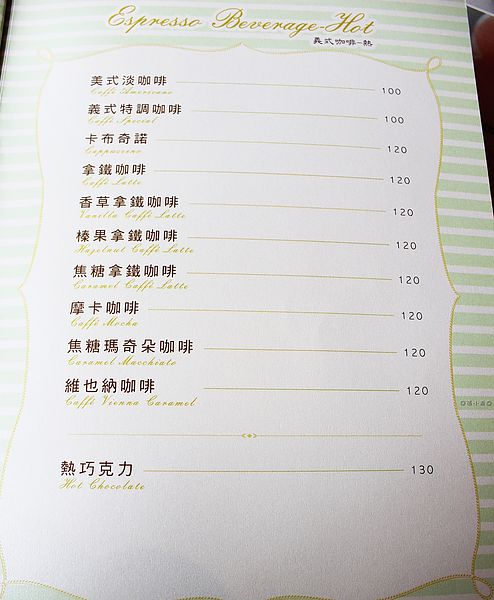 Espresso Beverage-Hot
義式咖啡-熱
美式淡咖啡 100
Caffé Americano
義式特調咖啡 100
Caffé Special
卡布奇諾 120
Cappuccino
拿鐵咖啡 120
Caffé Latte
香草拿鐵咖啡 120
Vanilla Caffé Latte
榛果拿鐵咖啡 120
Hazelnut Caffé Latte
焦糖拿鐵咖啡 120
Caramel Caffé Latte
摩卡咖啡 120
Caffé Mocha
焦糖瑪奇朵咖啡 120
Caramel Macchiato
維也納咖啡 120
Caffé Vienna Caramel
熱巧克力 130
Hot Chocolate